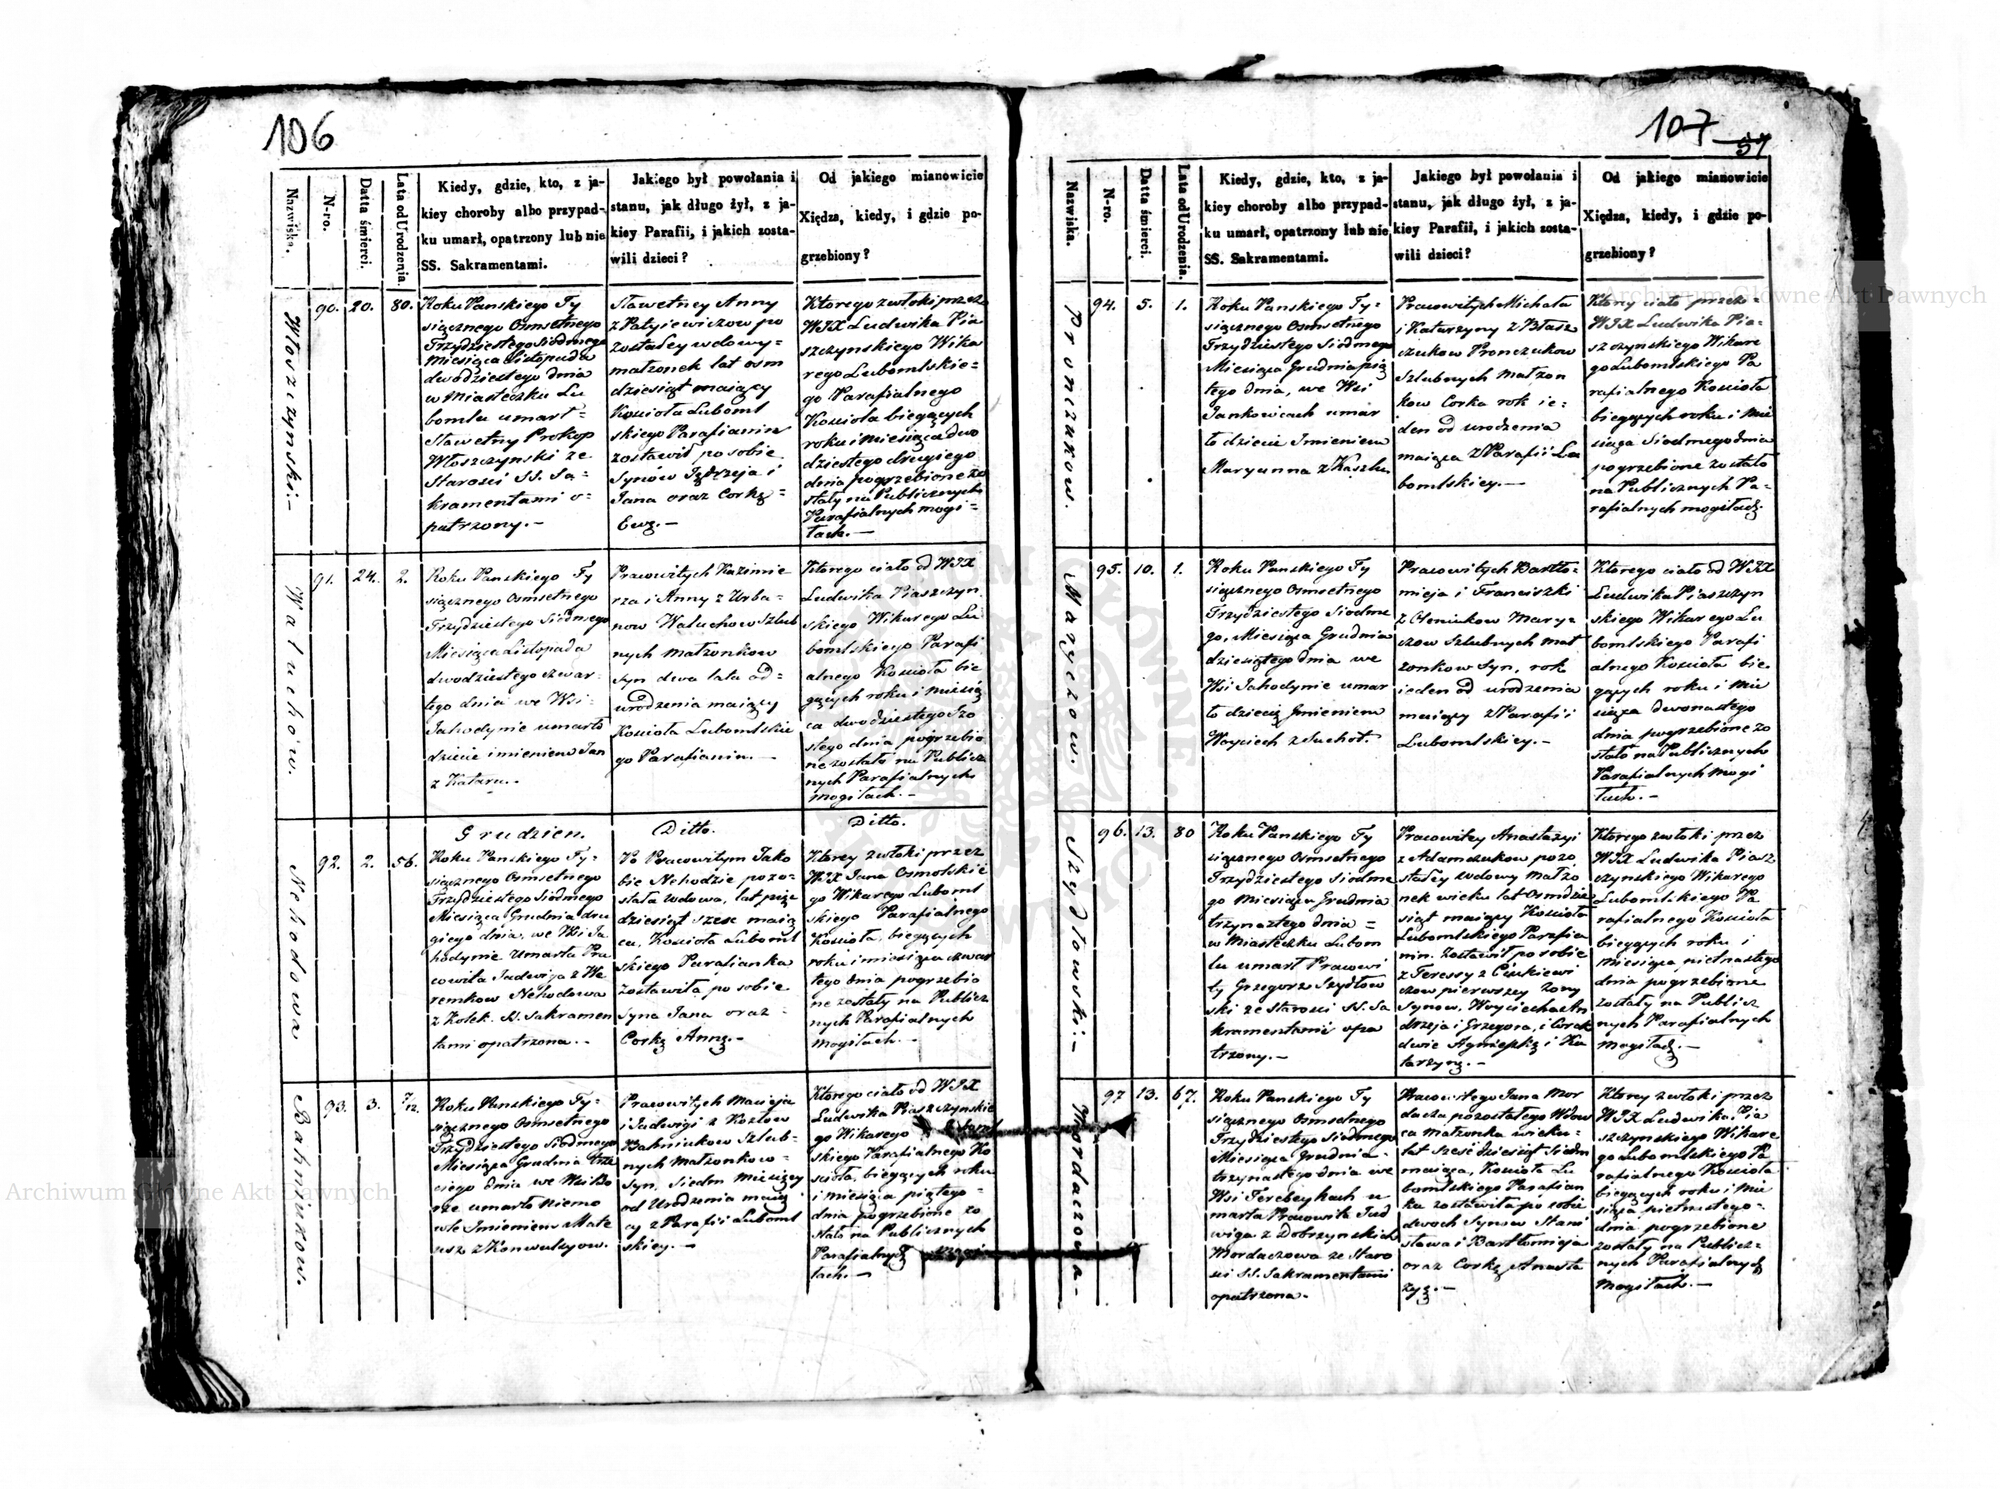 106
Nazwiska.
N-ro.
Datta śmierci.
Lata od Urodzenia.
Kiedy, gdzie, kto, z ja-
kiey choroby albo przypad-
ku umarł, opatrzony lub nie
SS. Sakramentami.
Jakiego był powołania i
stanu, jak długo żył, z ja-
kiey Parafii, i jakich zosta-
wili dzieci?
Od jakiego mianowicie
Xiędza, kiedy, i gdzie po-
grzebiony?
Włoszczynski.-
90.
20.
80.
Roku Panskiego Ty
siącznego Osmsetnego
Trzydziestego Siodmego
Miesiąca Listopada
dwódziestego dnia
w Miasteczku Lu
bomlu umarł=
Sławetny Prokop
Włoszczynski ze
Starosci SS. Sa-
kramentami o-
patrzony.-
Sławetney Anny
z Patyiewiczow po
zostałey wdowy-
małżonek lat osm
dziesiąt maiący
Kościoła Luboml
skiego Parafianin
zostawił po sobie
Synów Jędrzeja i
Jana oraz Corkę=
Ewę.-
Ktorego zwłoki przez
WJX Ludwika Pia
szczynskiego Wika
rego Lubomlskie-
go Parafialnego
Kościoła biegących
roku i miesiąca dwo
dziestego drugiego
dnia pogrzebione zo
stały na Publicznych
Parafialnych mogi-
łach.-
Waluchów.
91.
24.
2.
Roku Panskiego Ty
siącznego Osmsetnego
Trzydziestego Siodmego
Miesiąca Listopada
dwodziestego czwar-
tego dnia we Wsi-
Jahodynie umarło
dziecie imieniem Jan
z Kataru.-
Pracowitych Kazimie
rza i Anny z Urba-
now Waluchow Szlub
nych małżonkow
Syn dwa lata od-
urodzenia maiący
Kościoła Lubomlskie
go Parafianin.-
Ktorego ciało od WJX
Ludwika Piaszczyn
skiego Wikarego Lu
bomlskiego Parafi
alnego Kościoła bie
gących roku i miesią
ca dwodziestego szo
stego dnia pogrzebio
ne zostało na Publicz
nych Parafialnych
mogiłach.-
Nehodowa
92.
2.
56.
Grudzien.
Roku Panskiego Ty-
siącznego Osmsetnego
Trzydziestego Siodmego
Miesiąca Grudnia dru
giego dnia, we Wsi Ja
hodynie umarła Pra
cowita Jadwiga z We
remkow Nehodowa
z Kolek. SS. Sakramen
tami opatrzona.-
Ditto.
Po Pracowitym Jako
bie Nehodzie pozo-
stała wdowa, lat pięć
dziesiąt szesc maią
ca, Kościoła Luboml
skiego Parafianka
zostawiła po sobie
Syna Jana oraz-
Corkę Annę.-
Ditto.
Ktorey zwłoki przez
WJX Jana Osmolskie
go Wikarego Luboml
skiego Parafialnego
Kościoła, biegących
roku i miesiąca czwar
tego dnia pogrzebio
ne zostały na Publicz
nych Parafialnych
mogiłach.-
Bahniukow.
93.
3.
7/12.
Roku Panskiego Ty-
siącznego Osmsetnego
Trzydziestego Siodmego
Miesiąca Grudnia trze
ciego dnia we Wsi
umarło niemo
wle Imieniem Mate
usz z Konwulsyow.
Pracowitych Macieja
i Jadwigi z Kozłow
Bahniukow Szlub-
nych Małżonkow-
Syn, Siedm Miesięcy
od Urodzenia maią
cy z Parafii Luboml
skiey.-
Ktorego ciało od WJX
Ludwika Piaszczynskie
go Wikarego
skiego Parafialnego Ko
ścioła, biegących roku
i miesiąca piątego-
dnia pogrzebione zo
stało na Publicznych
Parafialnych
łach.-
107
57
Nazwiska.
N-ro.
Datta śmierci.
Lata od Urodzenia.
Kiedy, gdzie, kto, z ja-
kiey choroby albo przypad-
ku umarł, opatrzony lub nie
SS. Sakramentami.
Jakiego był powołania i
stanu, jak długo żył, z ja-
kiey Parafii, i jakich zosta-
wili dzieci?
Od jakiego mianowicie
Xiędza, kiedy, i gdzie po-
grzebiony?
Pronczukow.
94.
5.
1.
Roku Panskiego Ty-
siącznego Osmsetnego
Trzydziestego Siodmego
Miesiąca Grudnia pią
tego dnia, we Wsi
Jankowcach umar
ło dziecie Imieniem
Maryanna z Kaszlu
Pracowitych Michała
i Katarzyny z Błasz
czukow Pronczukow
Szlubnych Małżon
kow Corka rok ie-
den od urodzenia
maiąca z Parafii Lu
bomlskiey.-
Ktorey ciało przez-
WJX Ludwika Pia-
szczynskiego Wikare
go Lubomlskiego Pa
rafialnego Kościoła
biegących roku i mie
siąca Siodmego dnia
pogrzebione zostało
na Publicznych Pa-
rafialnych mogiłach.
Maryczow.
95.
10.
1.
Roku Panskiego Ty
siącznego Osmsetnego
Trzydziestego Siodme
go, Miesiąca Grudnia
dziesiątego dnia we
Wsi Jahodynie umar
ło dziecię Imieniem
Woyciech z Suchot.
Pracowitych Bartło-
mieja i Franciszki
z Cłoniukow Mary-
czow Szlubnych Mał
żonkow Syn, rok
ieden od urodzenia
maiący z Parafii
Lubomlskiey.-
Ktorego ciało od WJX
Ludwika Piaszczyn
skiego Wikarego Lu
bomlskiego Parafi
alnego Kościoła bie
gących roku i Mie
siąca dwonastego
dnia pogrzebione zo
stało na Publicznych
Parafialnych Mogi
łach.-
Szydłowski.-
96.
13.
80
Roku Panskiego Ty
siącznego Osmsetnego
Trzydziestego Siodme
go Miesiąca Grudnia
trzynastego dnia=
w Miasteczku Lubom
lu umarł Pracowi
ty Grzegorz Szydłow
ski ze Starosci SS. Sa
kramentami opa
trzony.-
Pracowitey Anastazyi
z Adamczukow pozo
stałey wdowy małżo
nek wieku lat Osmdzie
siąt maiący Kościoła
Lubomlskiego Parafia
nin. Zostawił po sobie
z Teressy z
czow pierwszey żony
Synow, Woyciecha An
drzeja i Grzegorza, i Corek
dwie Agnieszkę i Ka
tarzynę.-
Ktorego zwłoki przez
WJX Ludwika Piasz
czynskiego Wikarego
Lubomlskiego Pa
rafialnego Kościoła
biegących roku i
miesiąca pietnastego
dnia pogrzebione
zostały na Publicz
nych Parafialnych
mogiłach.-
Mordaczowa-
97
13.
67.
Roku Panskiego Ty
siącznego Osmsetnego
Trzydziestego Siodmego
Miesiąca Grudnia-
trzynastego dnia we
Wsi Terebeykach u
marła Pracowita Jad
wiga z Dobrzynskich
Mordaczowa ze Staro
sci SS. Sakramentami
opatrzona.-
Pracowitego Jana Mor
dacza pozostałego Wdow
ca małżonka wieku-
lat szesćdziesiąt siedm
maiąca, Kościoła Lu
bomlskiego Parafian
ka zostawiła po sobie
dwoch Synow Stani
sława i Bartłomieja
oraz Corkę Anasta
zyą.-
Ktorey zwłoki przez
WJX Ludwika Pia
szczynskiego Wikare
go Lubomlskiego Pa
rafialnego Kościoła
biegących roku i mie
siąca pietnastego-
dnia pogrzebione
zostały na Publicz-
nych Parafialnych
Mogiłach.-
Archiwum Główne Akt Dawnych
Archiwum Główne Akt Dawnych